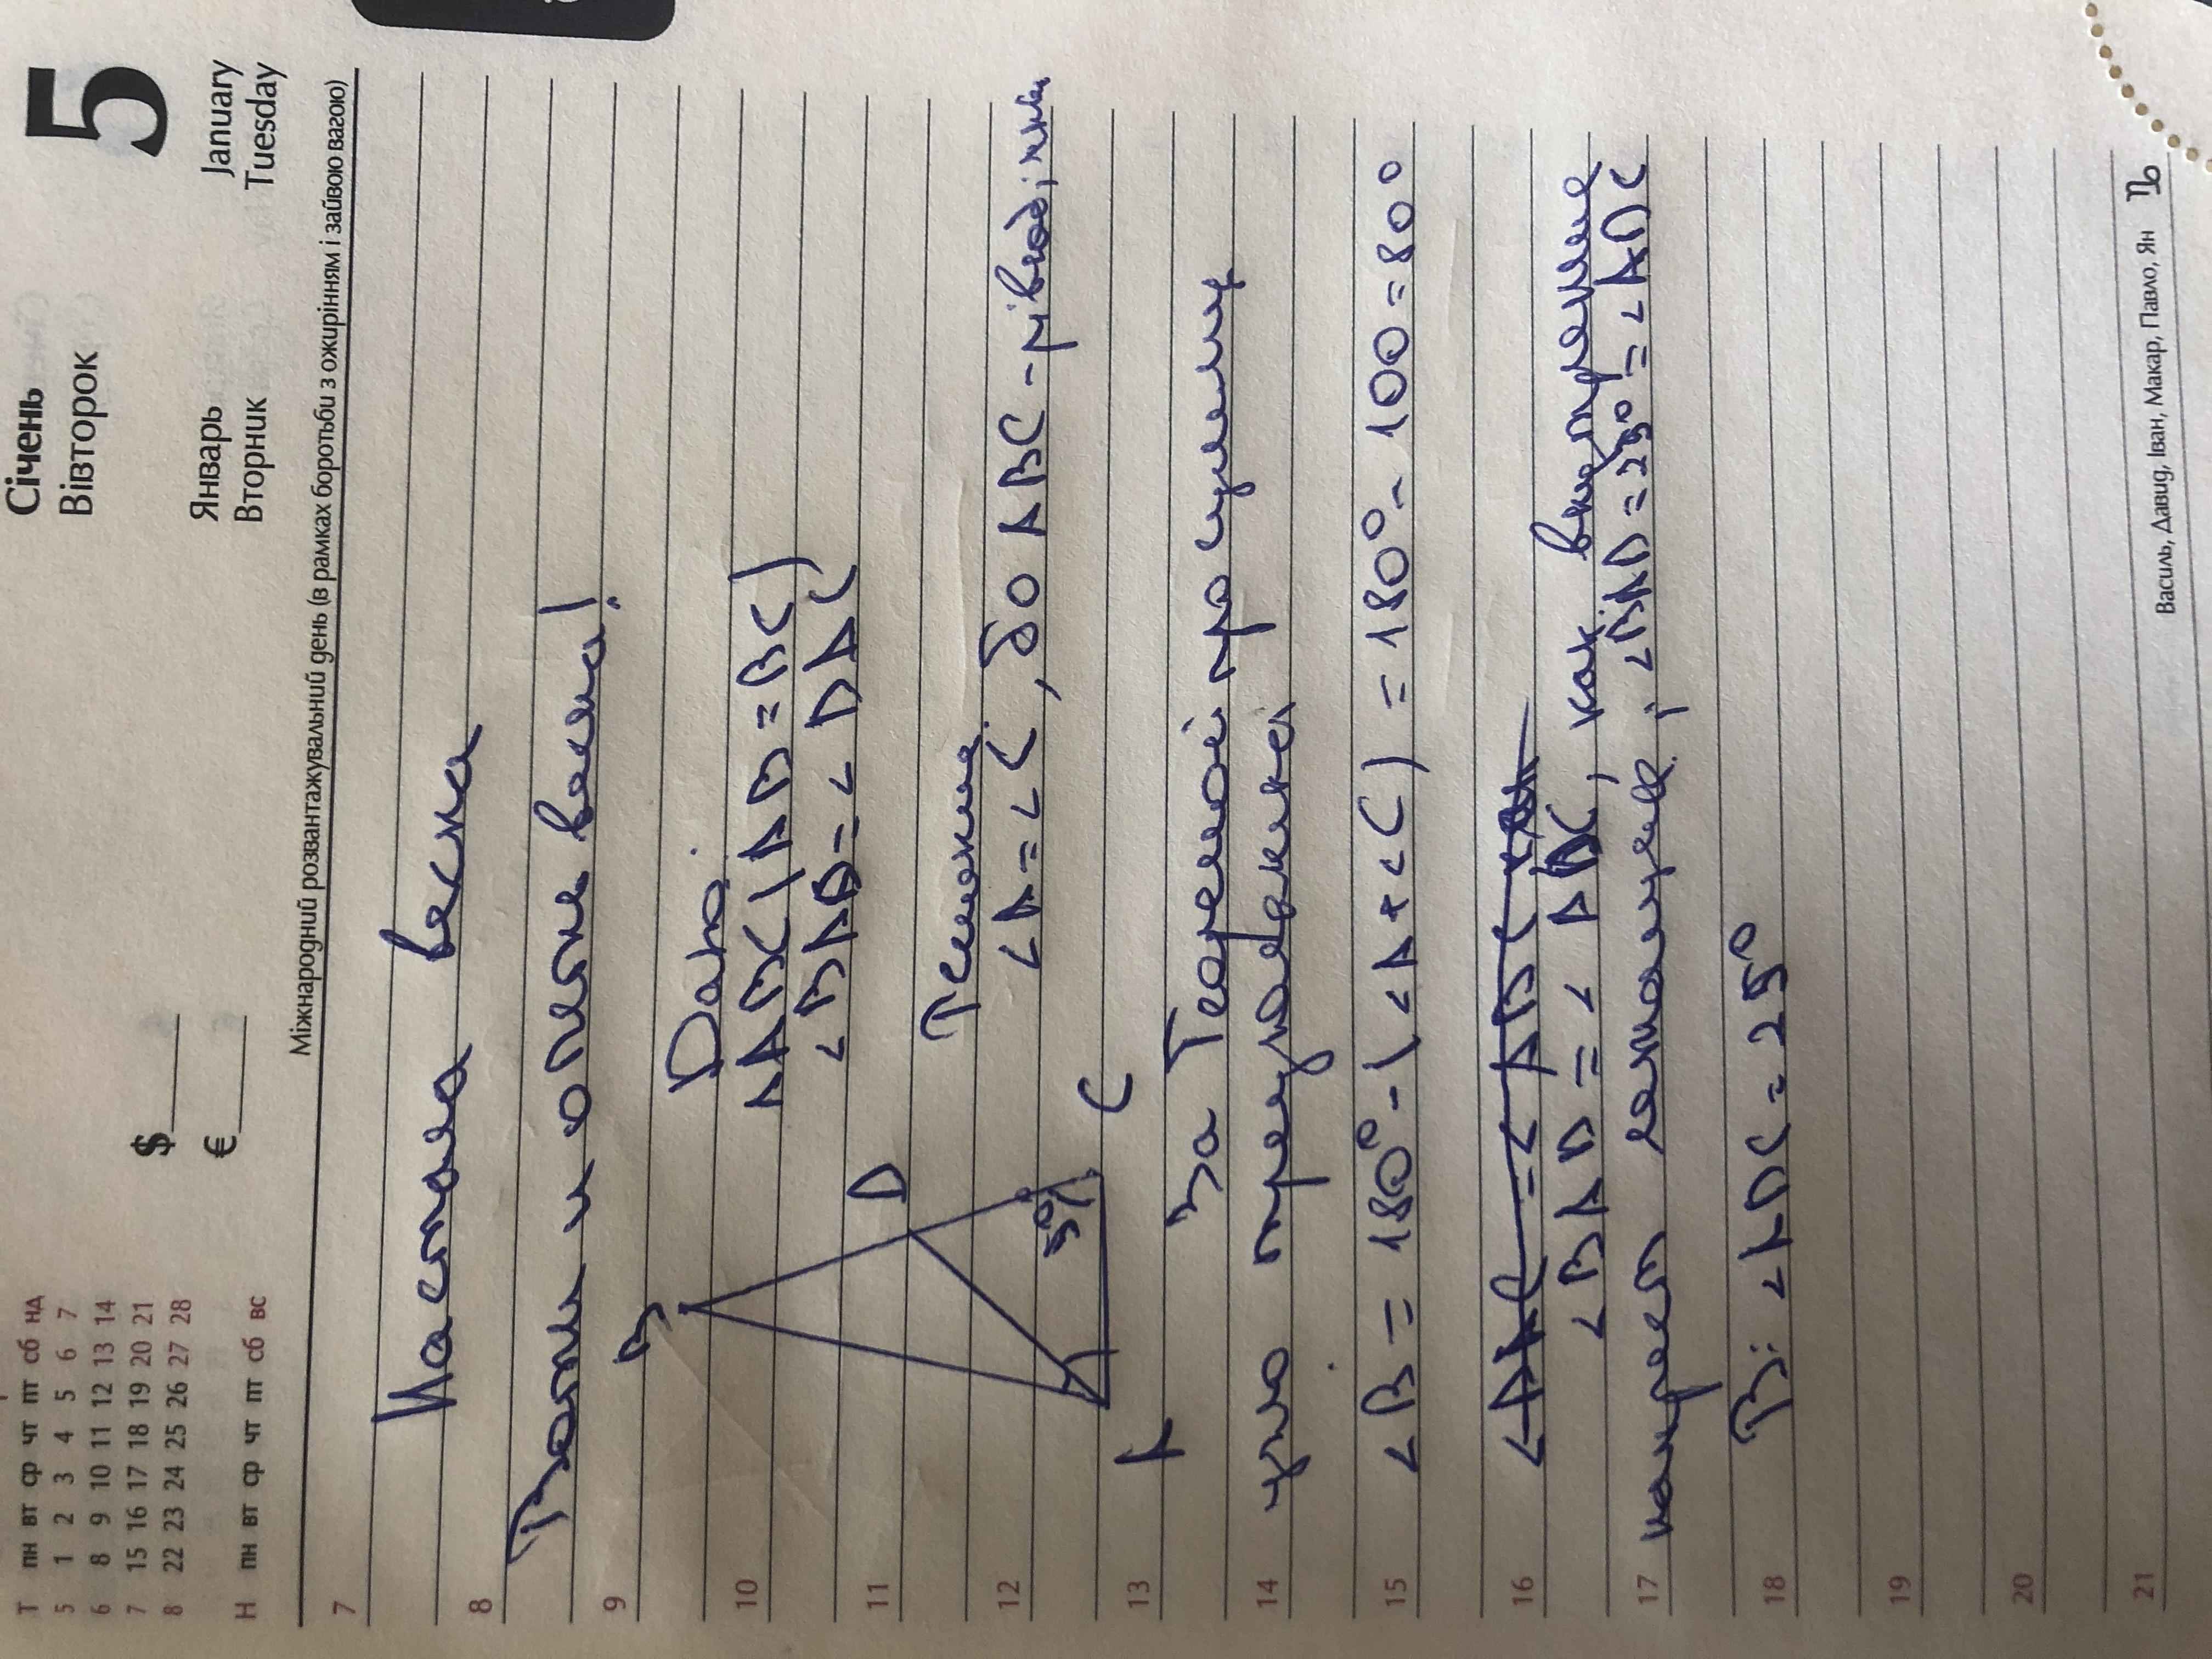 Січень
Вівторок
5
Январь
Вторник
January
Tuesday
$
€
Т пн вт ср чт пт сб нд
5 1 2 3 4 5 6 7
6 8 9 10 11 12 13 14
7 15 16 17 18 19 20 21
8 22 23 24 25 26 27 28
Н пн вт ср чт пт сб вс
Міжнародний розвантажувальний день (в рамках боротьби з ожирінням і зайвою вагою)
7
Настала весна
8
и опять весна!
9
B
Дано:
10
ABC (AB=BC)
<BAD=<DAC
D
11
12
<A=<C, бо ABC - рівнобічний
50°
A
C
13
За Теоремої про сумму
14
угло треугольника
15
<B = 180° - (<A+<C) = 180° - 100 = 80°
16
<BAD = < ADC, как внутренние
17
накрест лежащие; <BAD=25°=<ADC
18
В: <ADC=25°
19
20
21
Василь, Давид, Іван, Макар, Павло, Ян